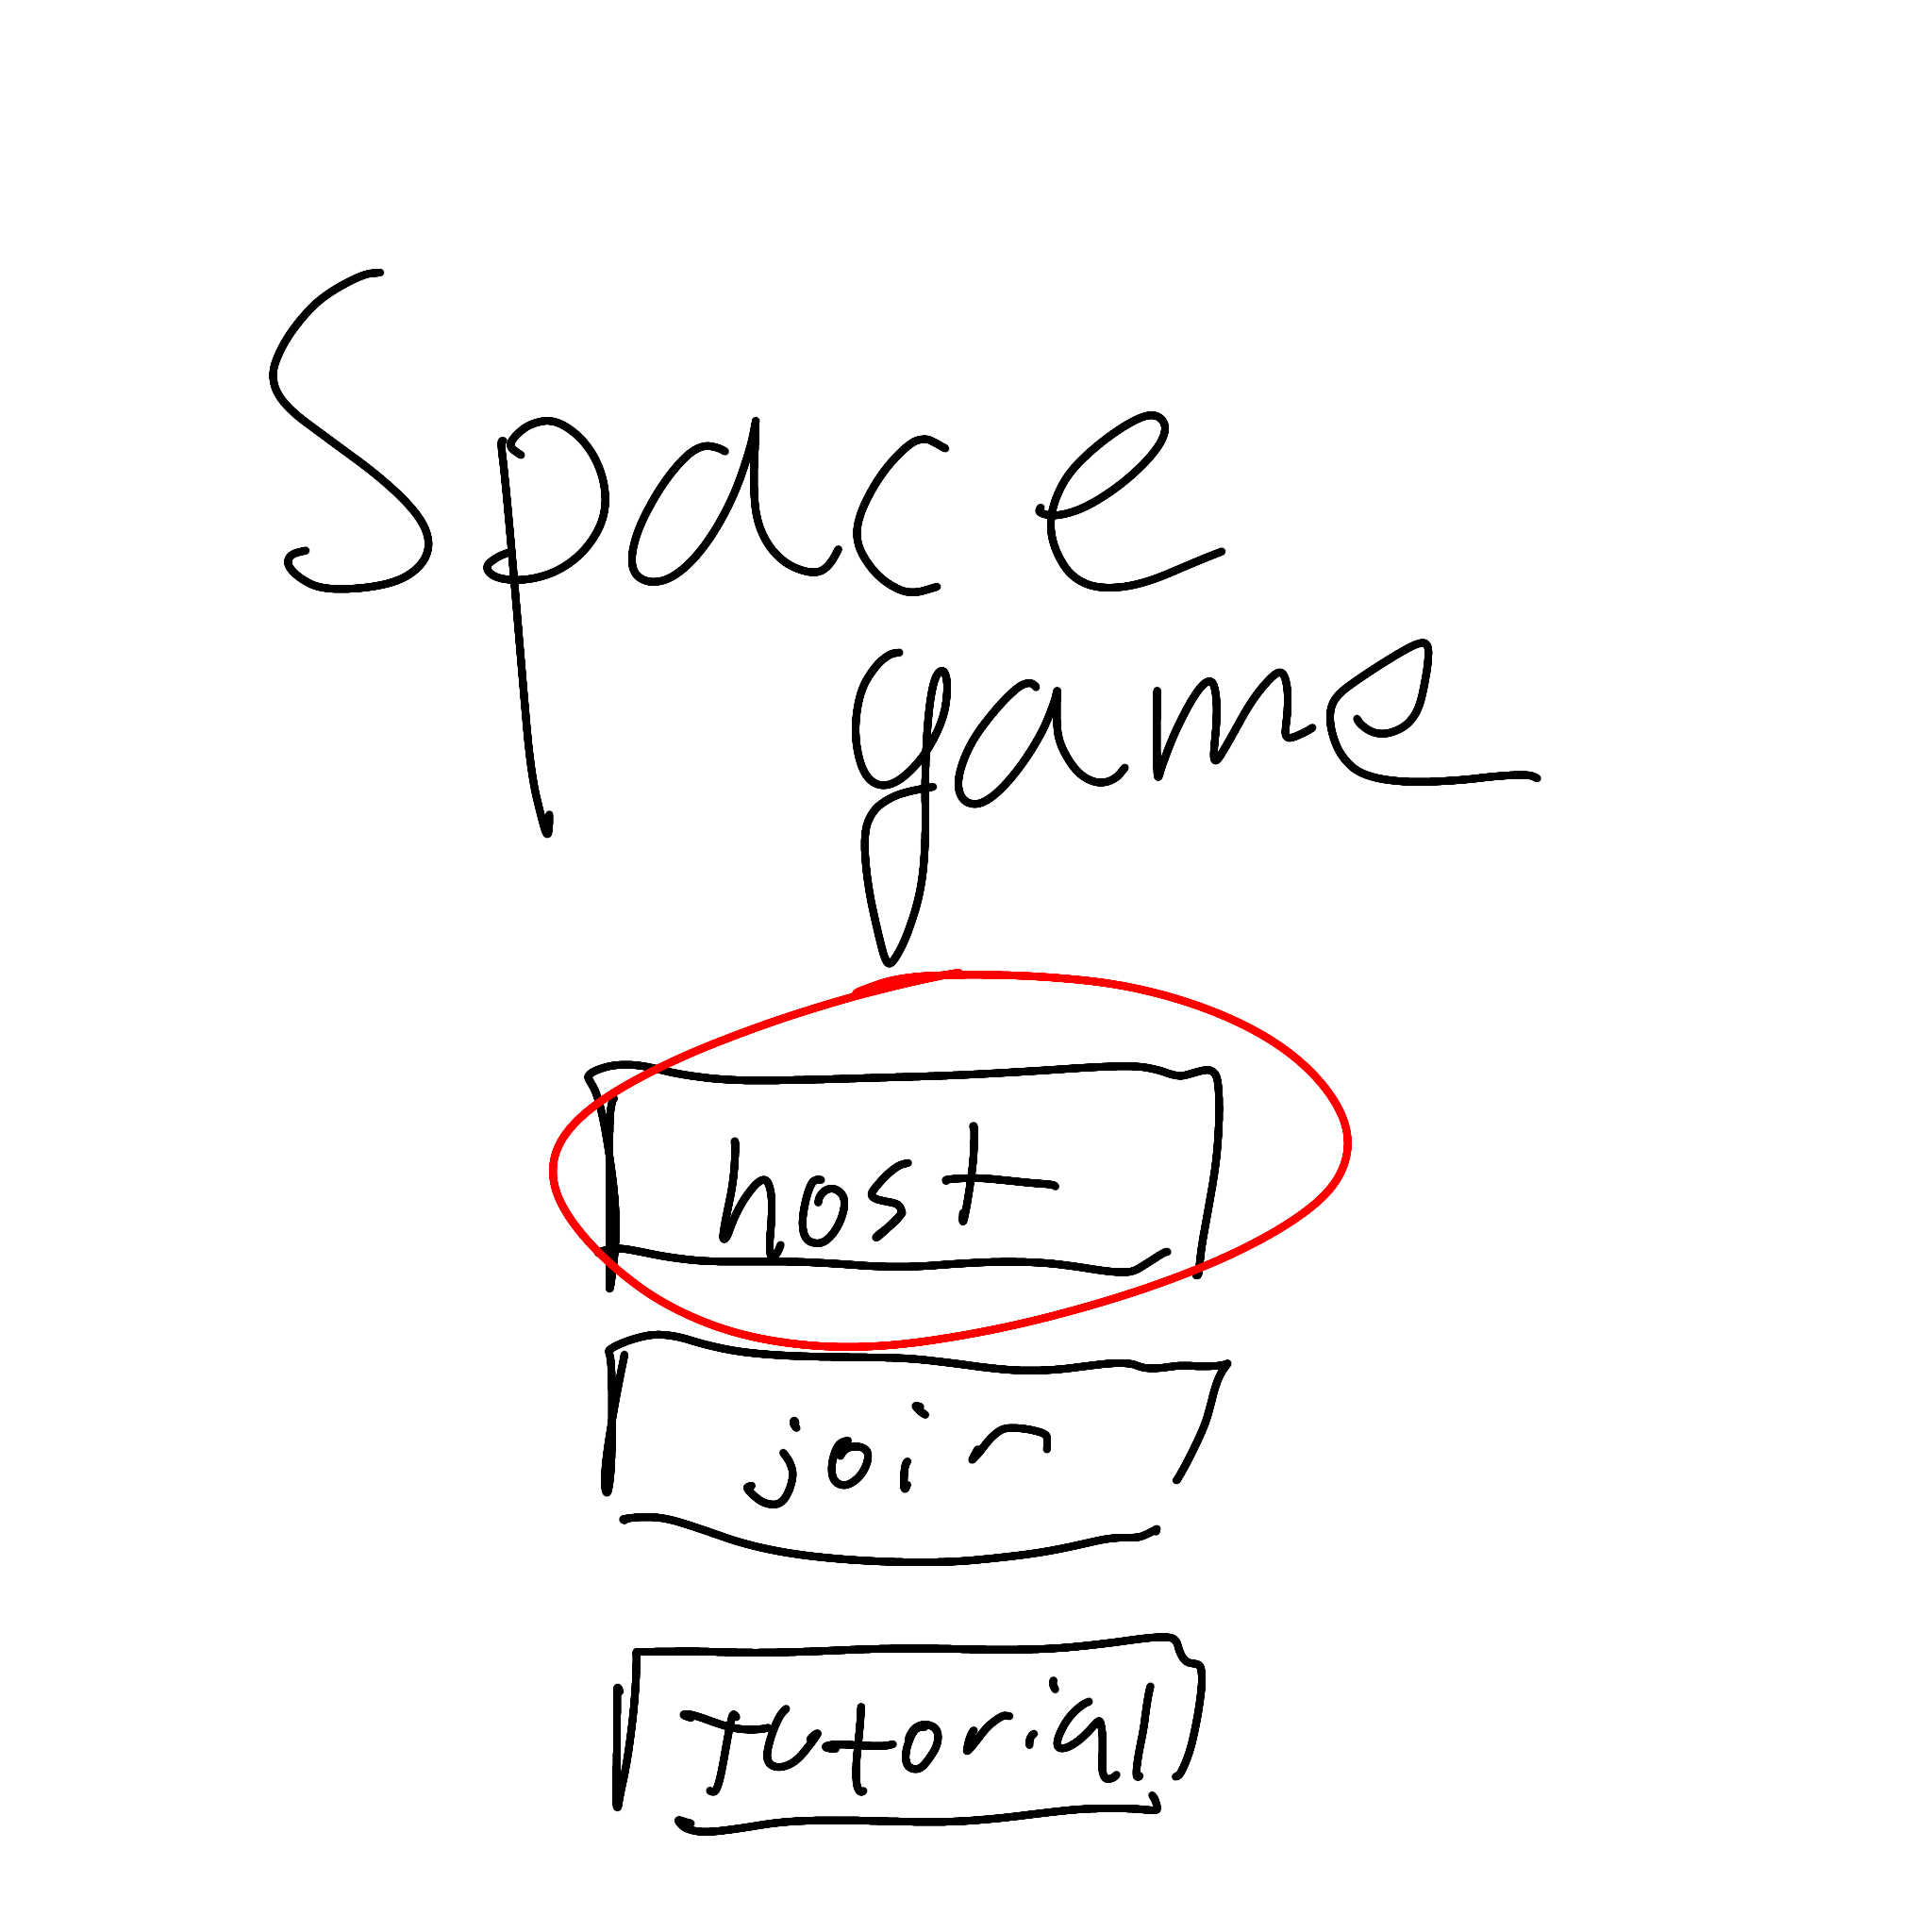 Space
game
host
join
tutorial